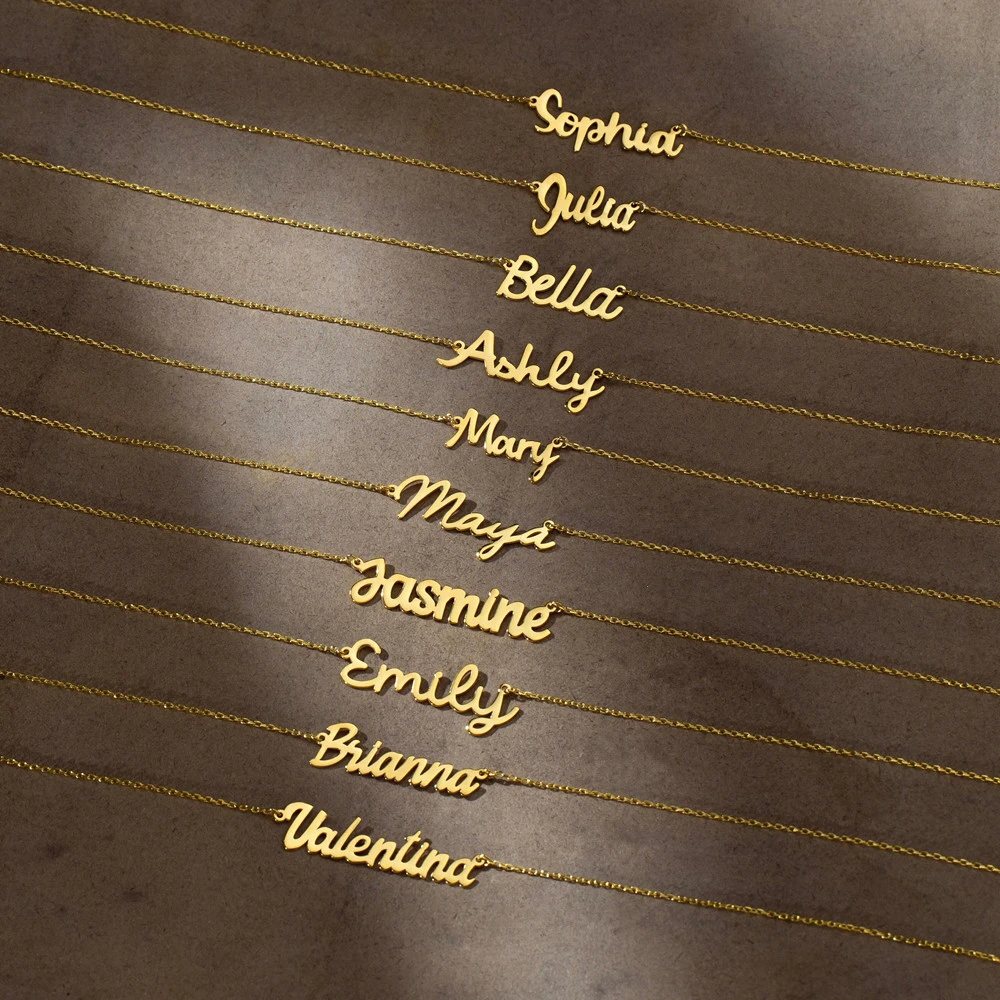 Sophia
Julia
Bella
Ashly
Mary
Maya
Jasmine
Emily
Brianna
Valentina